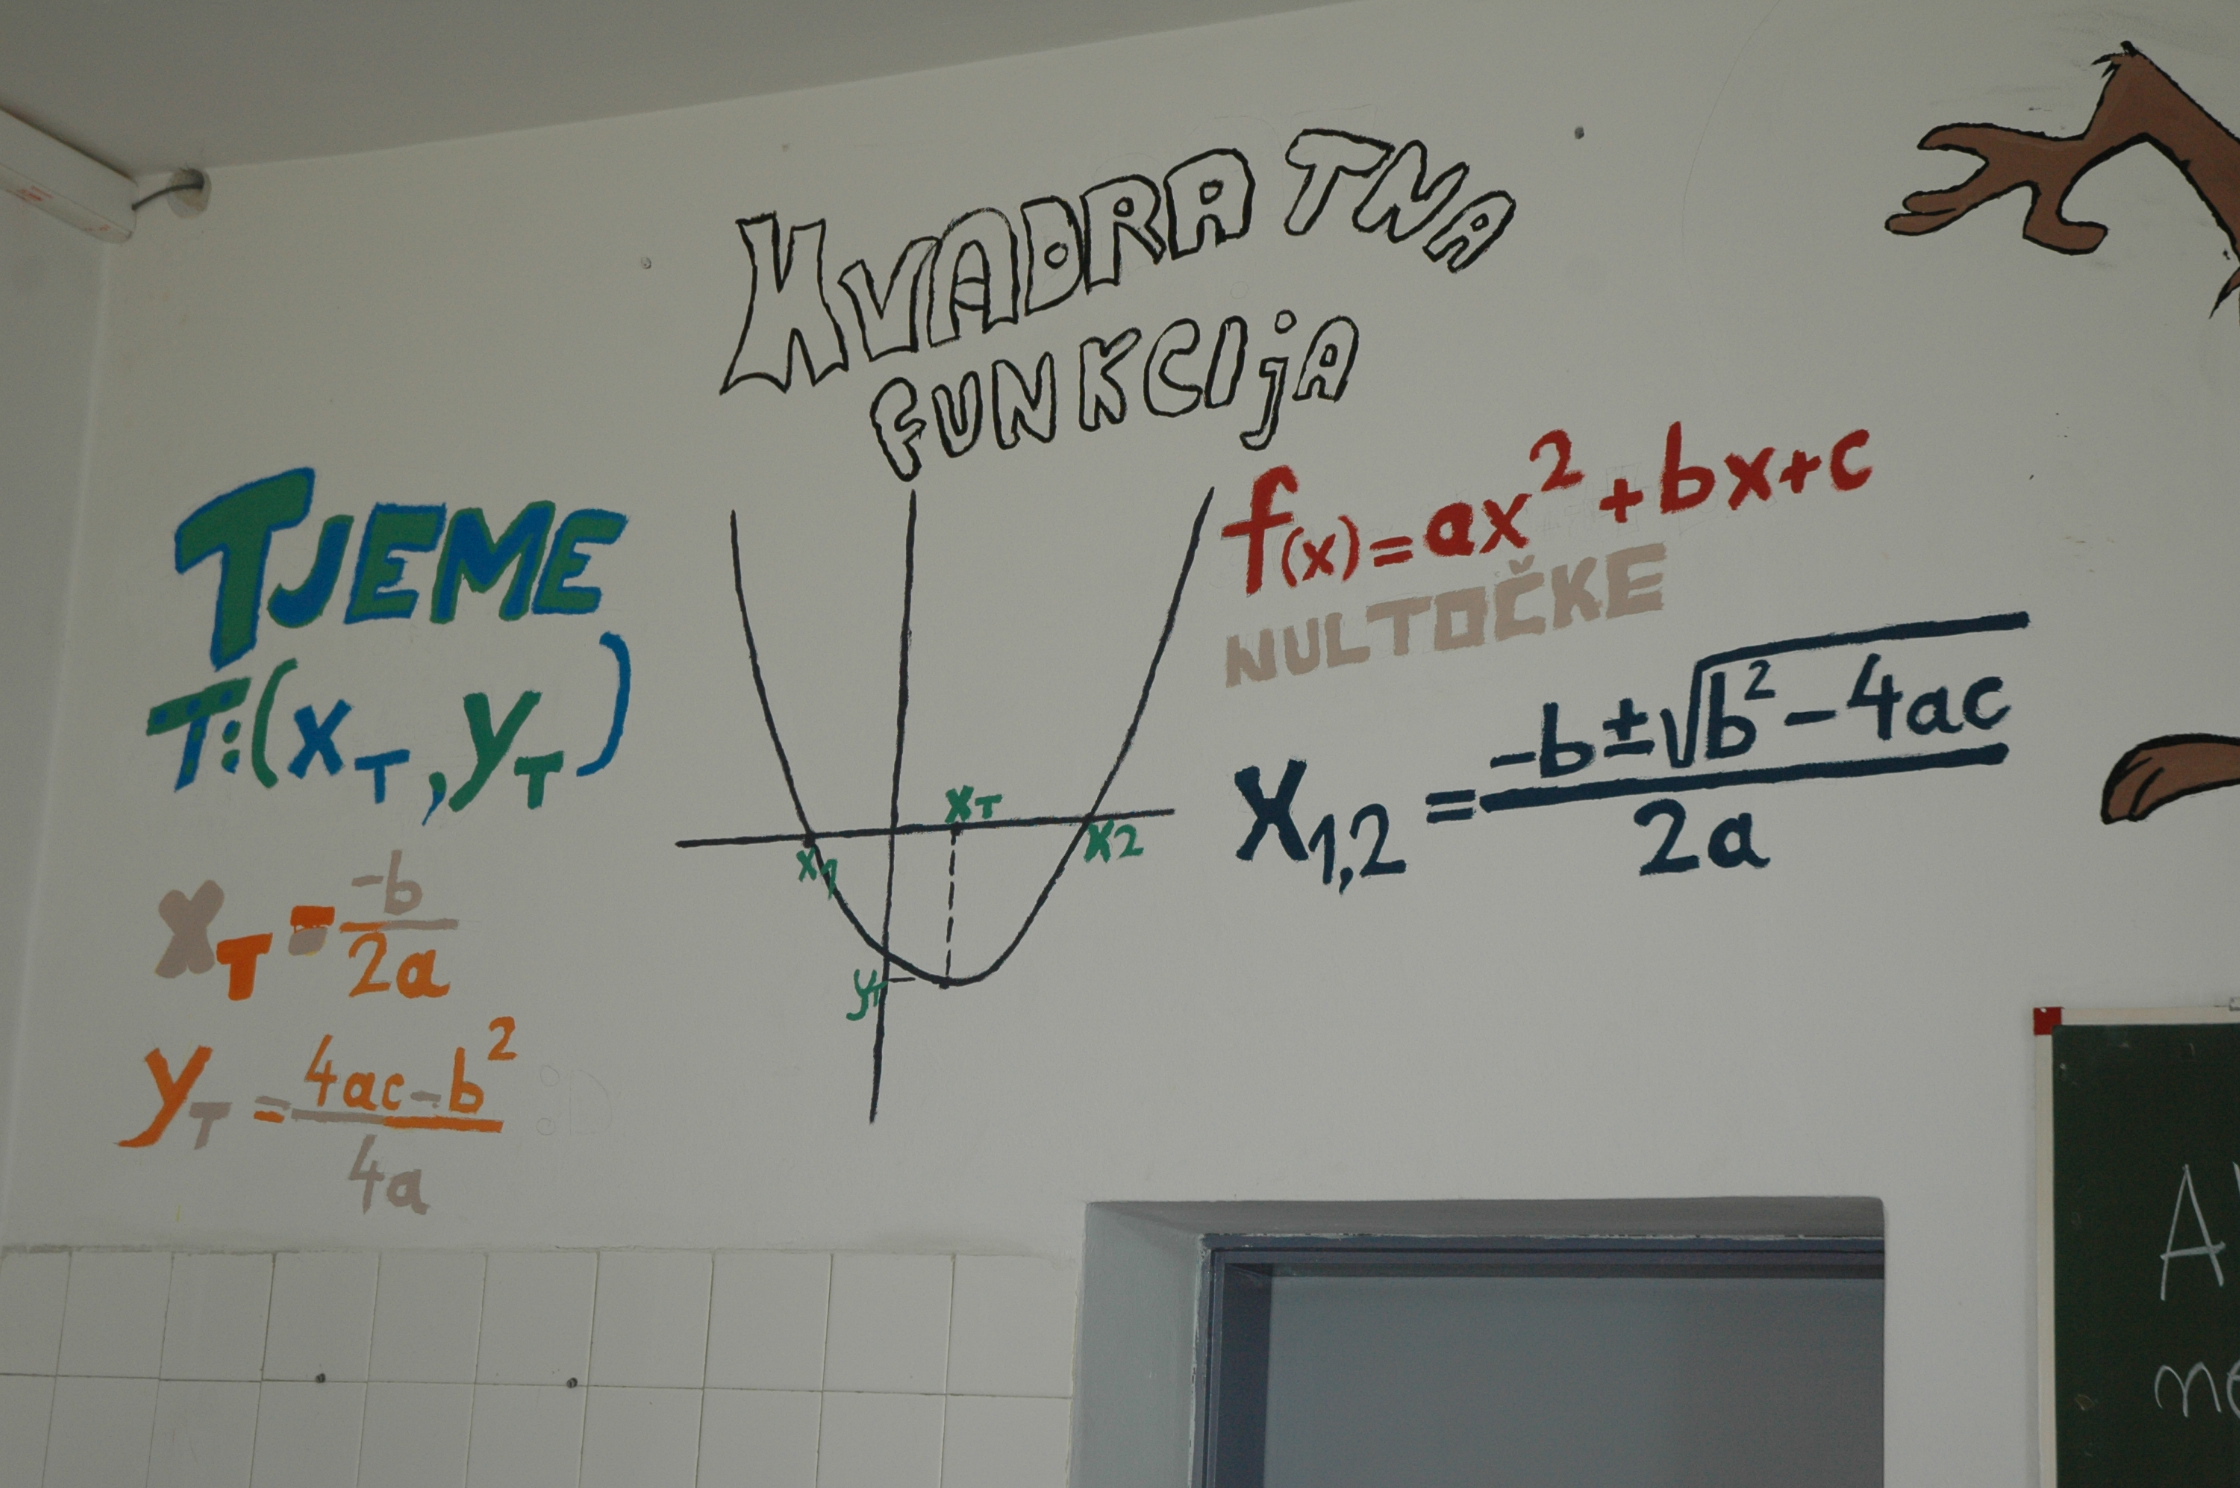 KVADRATNA
FUNKCIjA
TJEME
T:(x_T, y_T)
x_T = -b/2a
y_T = 4ac-b²/4a
x1
x_T
x2
y_T
f(x)=ax²+bx+c
NULTOČKE
x_1,2 = -b±√b²-4ac/2a